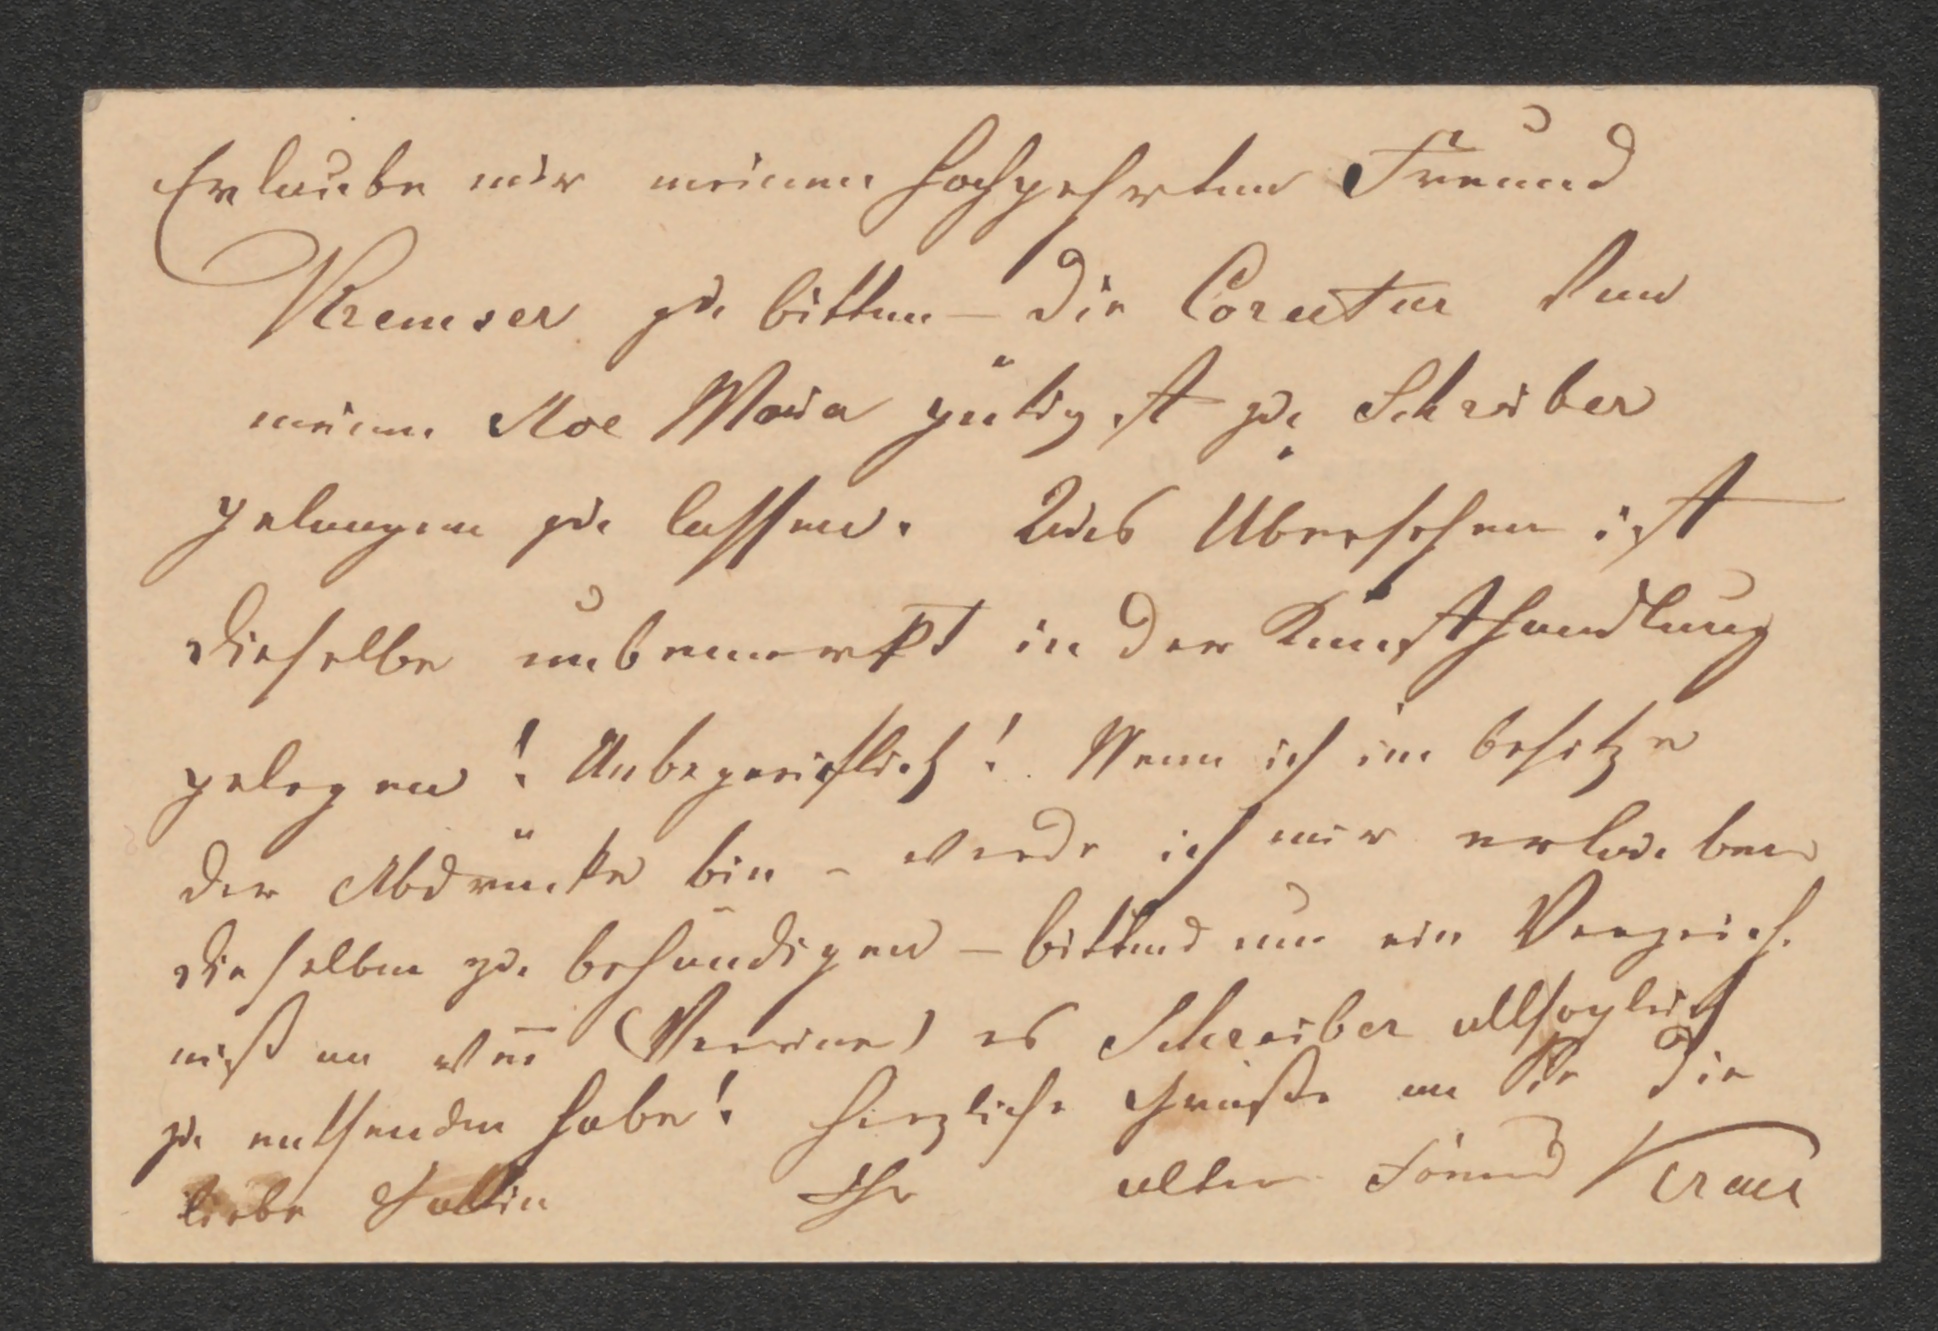 Erlaube mir meinen hochgehrten Freund
Kremser zu bitten – die Corectur von
meinem Ave Maria gütigst zu Schreiber
gelangen zu lassen. Aus Übersehen ist
dieselbe unbemerkt in der Kunsthandlung
gelegen! Unbegreiflich! Wenn ich im besitze
der Abdrücke bin – werde ich mir erlauben
dieselben zu behändigen – bittend um ein Verzeich
niß an wem (Vereine) es Schreiber allsogleich
zu entsenden habe! Herzliche Grüße an Sie die
liebe Gattin Ihr alter Freund